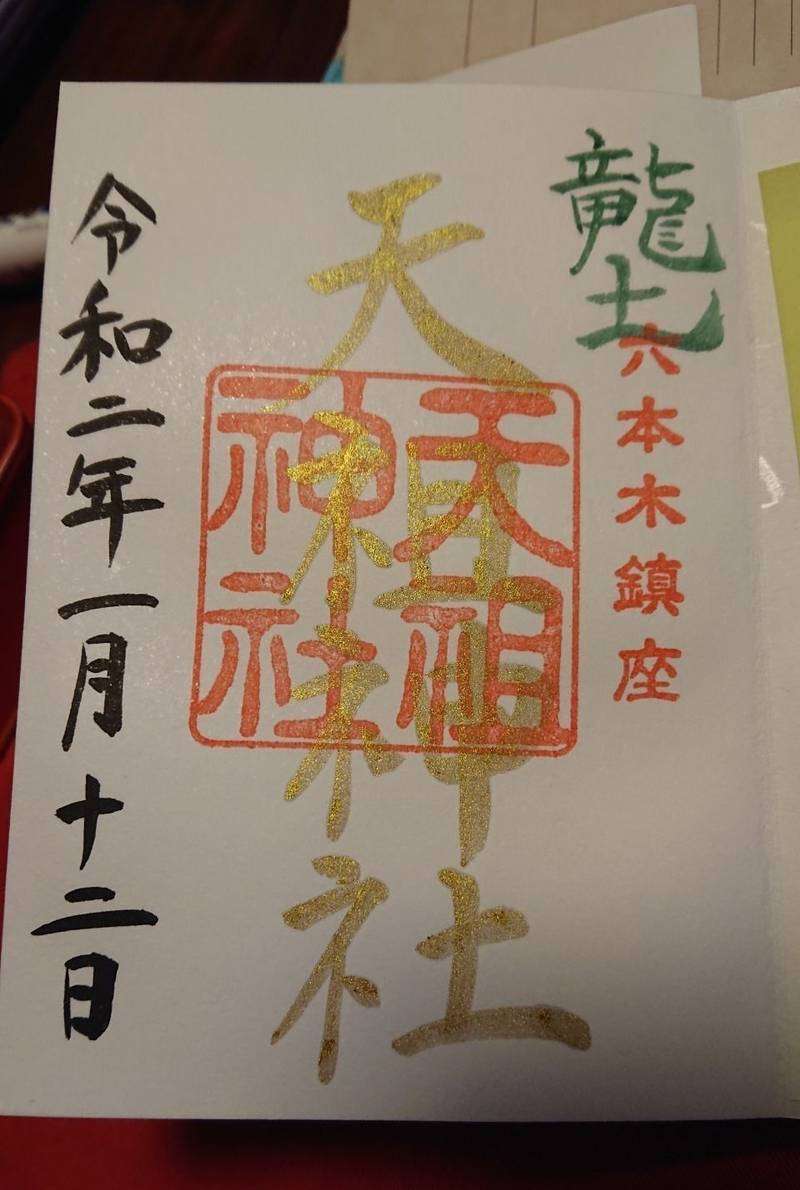 龍土
六本木鎮座
天祖神社
天祖
神社
令和二年一月十二日